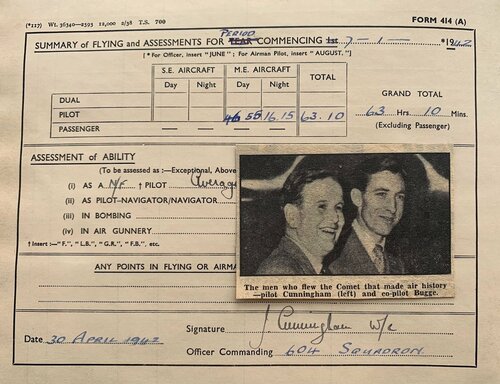 (*227) Wt. 36340—2595 12,000 2/38 T.S. 700
FORM 414 (A)
PERIOD
SUMMARY of FLYING and ASSESSMENTS FOR YEAR COMMENCING 1st 7-1- *19
[* For Officer, insert "JUNE"; For Airman Pilot, insert "AUGUST."]
S.E. AIRCRAFT M.E. AIRCRAFT TOTAL GRAND TOTAL
Day Night Day Night
DUAL
PILOT 46 55 16.15 63.10 63 Hrs. 10 Mins.
PASSENGER — — — — — (Excluding Passenger)
ASSESSMENT of ABILITY
(To be assessed as :—Exceptional, Above
(i) AS A N/F † PILOT Average
(ii) AS PILOT-NAVIGATOR/NAVIGATOR
(iii) IN BOMBING
(iv) IN AIR GUNNERY
† Insert :—"F.", "L.B.", "G.R.", "F.B.", etc.
The men who flew the Comet that made air history
—pilot Cunningham (left) and co-pilot Bugge.
ANY POINTS IN FLYING OR AIRMA
Signature J. Cunningham W/c
Date 30 APRIL 1942
Officer Commanding 604 SQUADRON